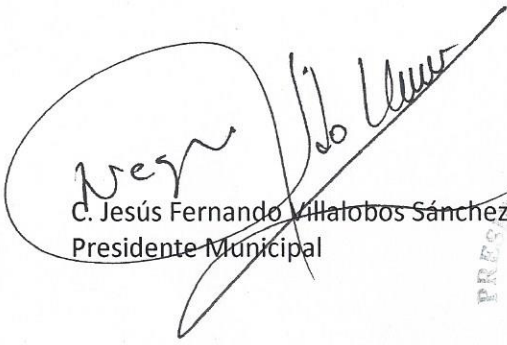 C. Jesús Fernando Villalobos Sánchez
Presidente Municipal
PRES